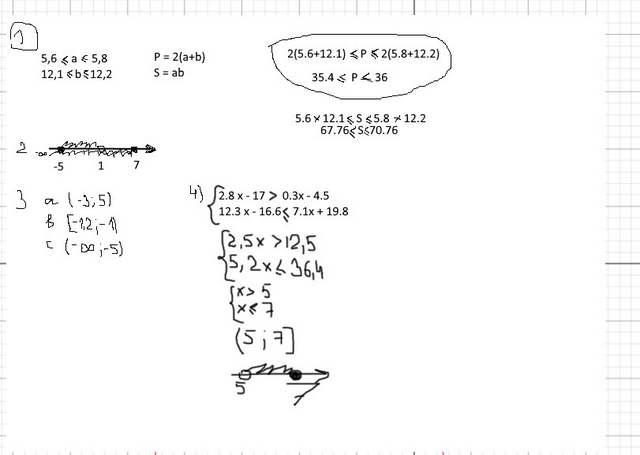 1
5,6 ⩽ a ⩽ 5,8 P = 2(a+b)
12,1 ⩽ b ⩽ 12,2 S = ab
2(5.6+12.1) ⩽ P ⩽ 2(5.8+12.2)
35.4 ⩽ P ⩽ 36
5.6 × 12.1 ⩽ S ⩽ 5.8 × 12.2
67.76 ⩽ S ⩽ 70.76
2 -∞
-5 1 7
3 a (-3;5)
b [-1,2;-1)
c (-∞;-5)
4)
2.8 x - 17 > 0.3x - 4.5
12.3 x - 16.6 ⩽ 7.1x + 19.8
2,5x > 12,5
5,2x ⩽ 36,4
x > 5
x ⩽ 7
(5;7]
5 7